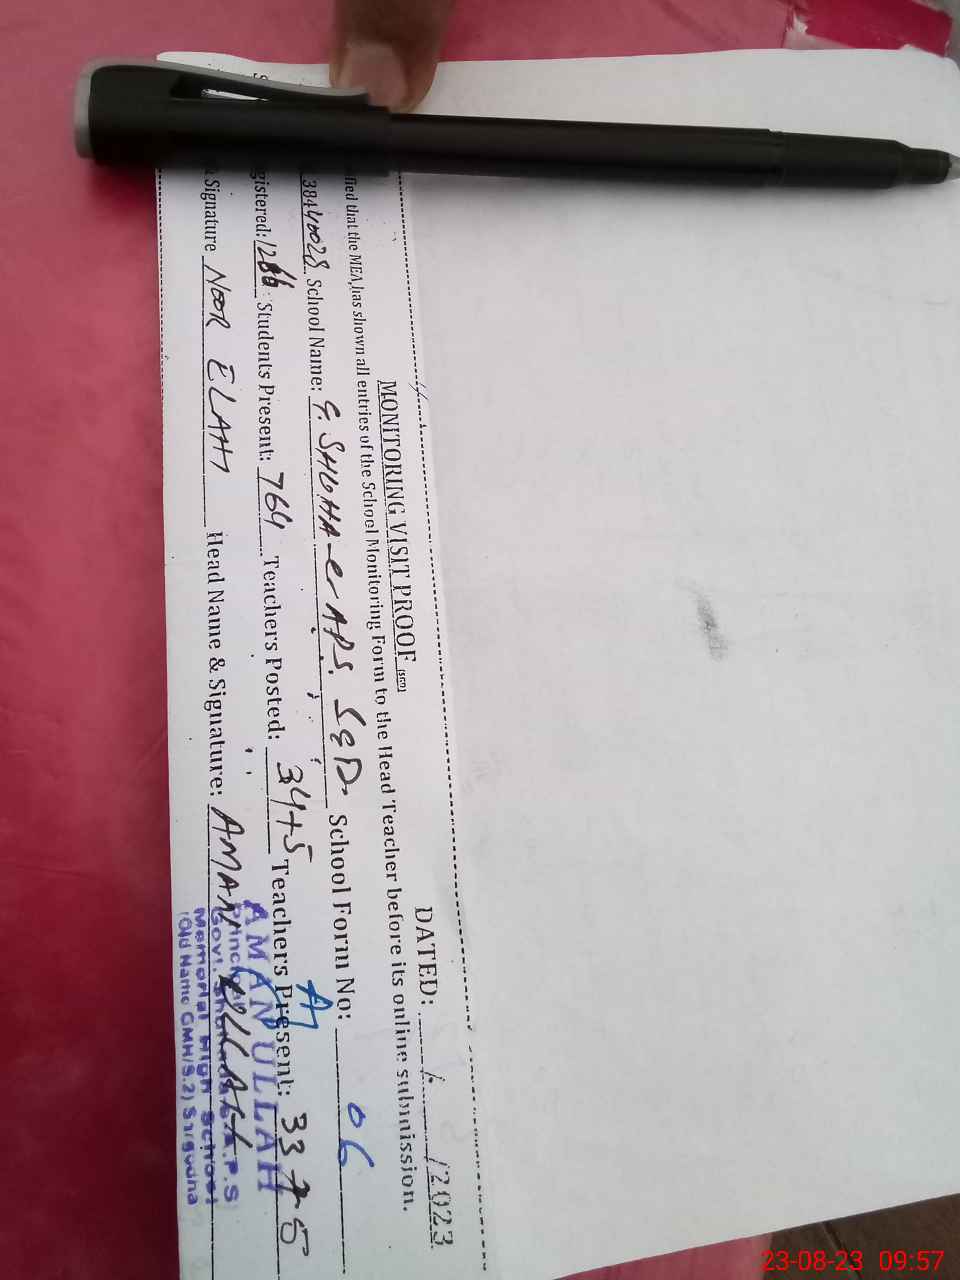 MONITORING VISIT PROOF (SED)
DATED: / /2023
fied that the MEA has shown all entries of the School Monitoring Form to the Head Teacher before its online submission.
38440028 School Name: G. SHUHA-e-APS. SGD. School Form No: 06
gistered: Students Present: 764 Teachers Posted: 34+5 Teachers Present: 33+5
Signature NOOR ELAHI Head Name & Signature: AMAN ULLAH
AMAN ULLAH
Principal
Govt. Shuhada-e-A.P.S
Memorial High School
(Old Name GMH/S.2) Sargodha
23-08-23 09:57